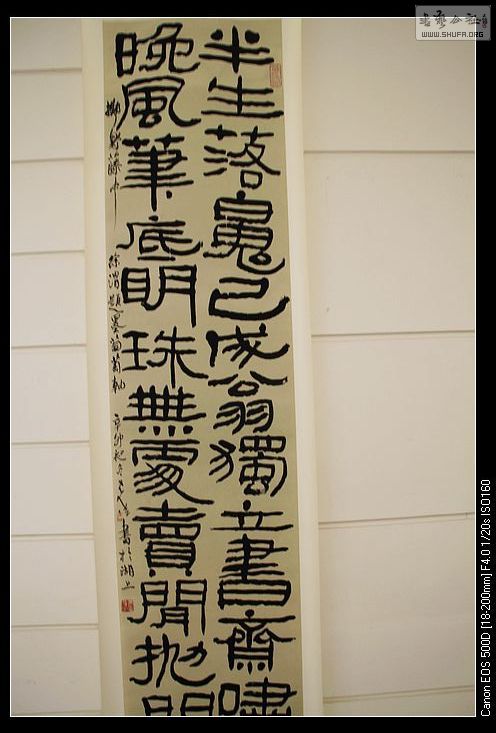 書藝公社
WWW.SHUFA.ORG
半生落魄已成翁獨立書齋嘯
晚風筆底明珠無處賣閒拋閒
擲野藤中 徐渭題墨葡萄軸 辛卯初冬 書於湖上
Canon EOS 500D [18-200mm] F4.0 1/20s ISO160